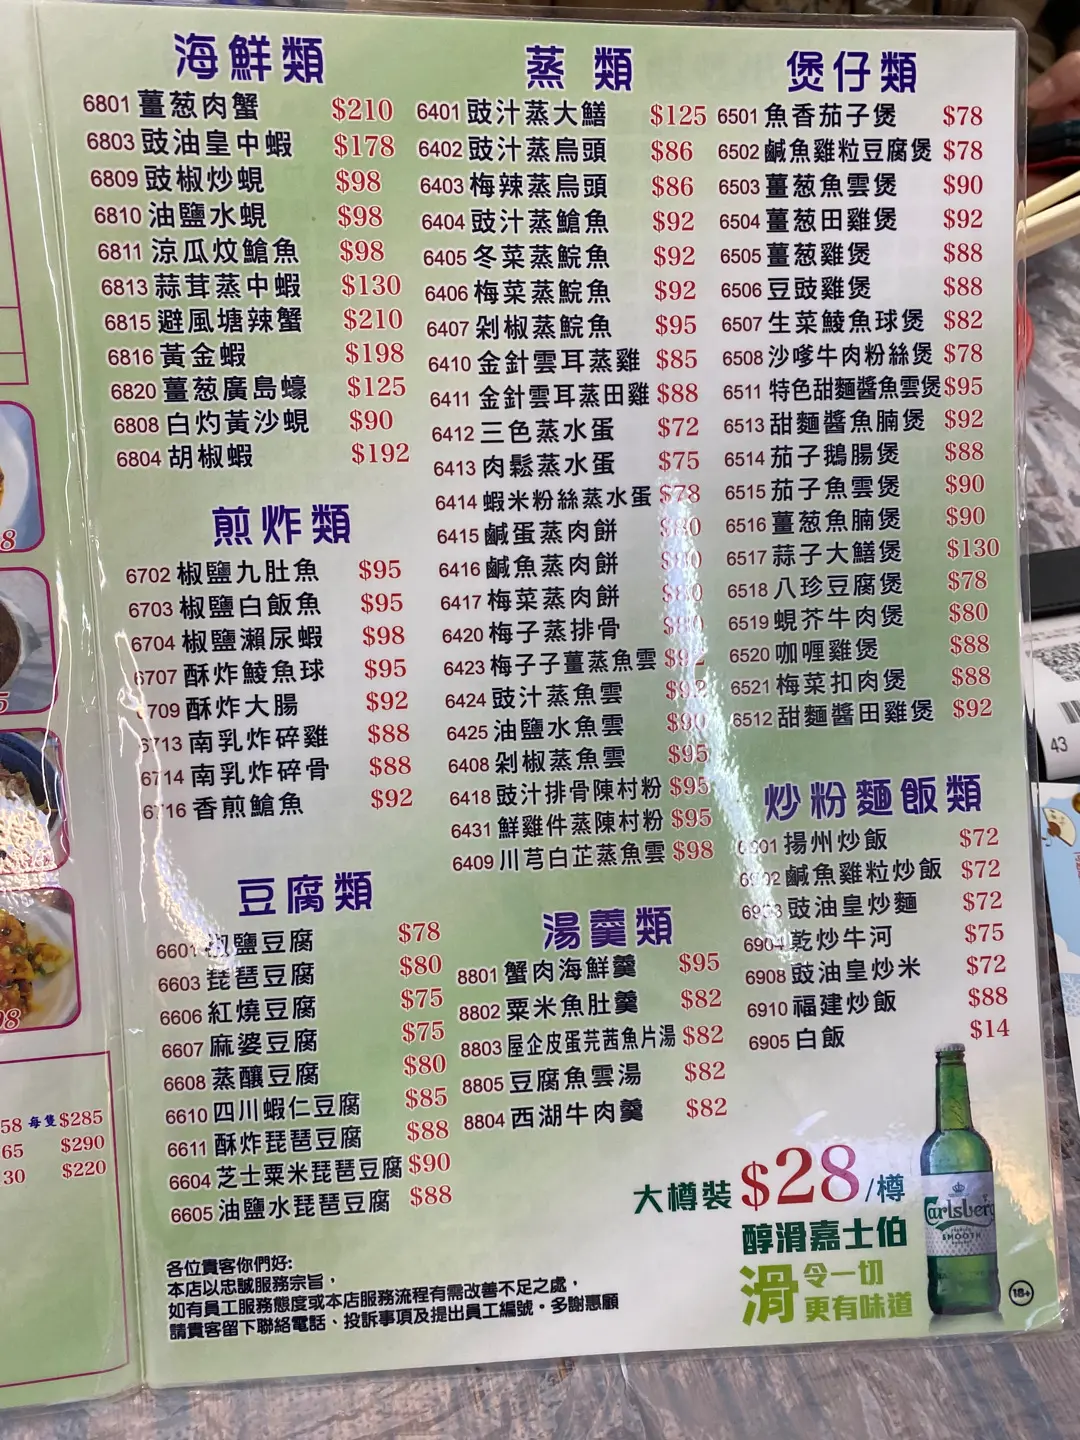 海鮮類
6801 薑葱肉蟹 $210
6803 豉油皇中蝦 $178
6809 豉椒炒蜆 $98
6810 油鹽水蜆 $98
6811 涼瓜炆鱠魚 $98
6813 蒜茸蒸中蝦 $130
6815 避風塘辣蟹 $210
6816 黃金蝦 $198
6820 薑葱廣島蠔 $125
6808 白灼黃沙蜆 $90
6804 胡椒蝦 $192
煎炸類
6702 椒鹽九肚魚 $95
6703 椒鹽白飯魚 $95
6704 椒鹽瀨尿蝦 $98
6707 酥炸鯪魚球 $95
6709 酥炸大腸 $92
6713 南乳炸碎雞 $88
6714 南乳炸碎骨 $88
6716 香煎鱠魚 $92
豆腐類
6601 椒鹽豆腐 $78
6603 琵琶豆腐 $80
6606 紅燒豆腐 $75
6607 麻婆豆腐 $75
6608 蒸釀豆腐 $80
6610 四川蝦仁豆腐 $85
6611 酥炸琵琶豆腐 $88
6604 芝士粟米琵琶豆腐 $90
6605 油鹽水琵琶豆腐 $88
蒸類
6401 豉汁蒸大鱔 $125
6402 豉汁蒸烏頭 $86
6403 梅辣蒸烏頭 $86
6404 豉汁蒸鱠魚 $92
6405 冬菜蒸鯇魚 $92
6406 梅菜蒸鯇魚 $92
6407 剁椒蒸鯇魚 $95
6410 金針雲耳蒸雞 $85
6411 金針雲耳蒸田雞 $88
6412 三色蒸水蛋 $72
6413 肉鬆蒸水蛋 $75
6414 蝦米粉絲蒸水蛋 $78
6415 鹹蛋蒸肉餅 $80
6416 鹹魚蒸肉餅 $80
6417 梅菜蒸肉餅 $80
6420 梅子蒸排骨 $80
6423 梅子子薑蒸魚雲 $92
6424 豉汁蒸魚雲 $92
6425 油鹽水魚雲 $90
6408 剁椒蒸魚雲 $95
6418 豉汁排骨陳村粉 $95
6431 鮮雞件蒸陳村粉 $95
6409 川芎白芷蒸魚雲 $98
湯羹類
8801 蟹肉海鮮羹 $95
8802 粟米魚肚羹 $82
8803 屋企皮蛋芫茜魚片湯 $82
8805 豆腐魚雲湯 $82
8804 西湖牛肉羹 $82
煲仔類
6501 魚香茄子煲 $78
6502 鹹魚雞粒豆腐煲 $78
6503 薑葱魚雲煲 $90
6504 薑葱田雞煲 $92
6505 薑葱雞煲 $88
6506 豆豉雞煲 $88
6507 生菜鯪魚球煲 $82
6508 沙嗲牛肉粉絲煲 $78
6511 特色甜麵醬魚雲煲 $95
6513 甜麵醬魚腩煲 $92
6514 茄子鵝腸煲 $88
6515 茄子魚雲煲 $90
6516 薑葱魚腩煲 $90
6517 蒜子大鱔煲 $130
6518 八珍豆腐煲 $78
6519 蜆芥牛肉煲 $80
6520 咖喱雞煲 $88
6521 梅菜扣肉煲 $88
6512 甜麵醬田雞煲 $92
炒粉麵飯類
6901 揚州炒飯 $72
6902 鹹魚雞粒炒飯 $72
6903 豉油皇炒麵 $72
6904 乾炒牛河 $75
6908 豉油皇炒米 $72
6910 福建炒飯 $88
6905 白飯 $14
大樽裝 $28/樽
醇滑嘉士伯
滑 令一切
更有味道
Carlsberg
SMOOTH
18+
各位貴客你們好:
本店以忠誠服務宗旨，
如有員工服務態度或本店服務流程有需改善不足之處，
請貴客留下聯絡電話、投訴事項及提出員工編號。多謝惠顧
58 每隻 $285
65 $290
30 $220
43